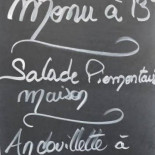 Menu à 13
Salade Piemontais
maison
Andouillette à